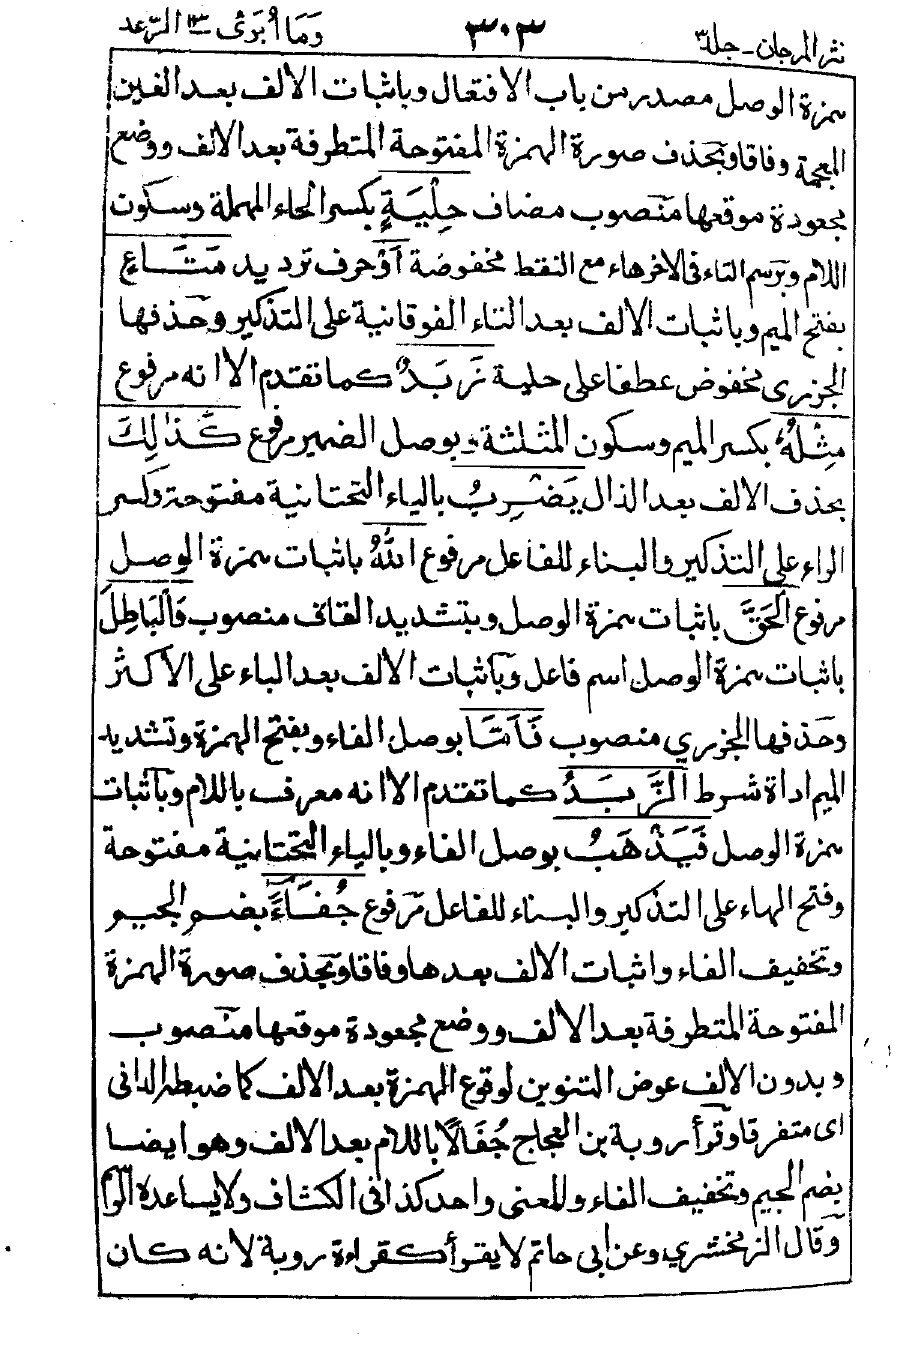 نثر المرجان - جلد ٣ ٣٠٣ وَمَا أُبَرِّئُ ١٣ الرّعد
همزة الوصل مصدر من باب الافتعال وباثبات الالف بعد الغين
المعجمة وفاقا وبحذف صورة الهمزة المفتوحة المتطرفة بعد الالف ووضع
مجعودة موقعها منصوب مضاف حِلْيَةٍ بكسر الحاء المهملة وسكون
اللام وبرسم التاء فى الاخر هاء مع النقط مخفوضة أَوْ حرف ترديد مَتَاعٍ
بفتح الميم وباثبات الالف بعد التاء الفوقانية على التذكير وحذفها
الجزرى مخفوض عطفا على حلية زَبَدٌ كما تقدم الا انه مرفوع
مِثْلُهُ بكسر الميم وسكون المثلثة وبوصل الضمير مرفوع كَذٰلِكَ
بحذف الالف بعد الذال يَضْرِبُ بالياء التحتانية مفتوحة وكسر
الراء على التذكير والبناء للفاعل مرفوع اللّٰهُ باثبات همزة الوصل
مرفوع الْحَقَّ باثبات همزة الوصل وبتشديد القاف منصوب وَالْبَاطِلَ
باثبات همزة الوصل اسم فاعل وباثبات الالف بعد الباء على الاكثر
وحذفها الجزري منصوب فَأَمَّا بوصل الفاء وبفتح الهمزة وتشديد
الميم اداة شرط الزَّبَدُ كما تقدم الا انه معرف باللام وباثبات
همزة الوصل فَيَذْهَبُ بوصل الفاء وبالياء التحتانية مفتوحة
وفتح الهاء على التذكير والبناء للفاعل مرفوع جُفَآءً بضم الجيم
وتخفيف الفاء واثبات الالف بعدها وفاقا وبحذف صورة الهمزة
المفتوحة المتطرفة بعد الالف ووضع مجعودة موقعها منصوب
وبدون الالف عوض التنوين لوقوع الهمزة بعد الالف كما ضبطه الدانى
اى متفرقا وقرأ روبة بن العجاج جُفَالًا باللام بعد الالف وهو ايضا
بضم الجيم وتخفيف الفاء والمعنى واحد كذا فى الكشاف ولا يساعده الرسم
وقال الزمخشري وعن ابي حاتم لا يقرأ كقراءة روبة لانه كان